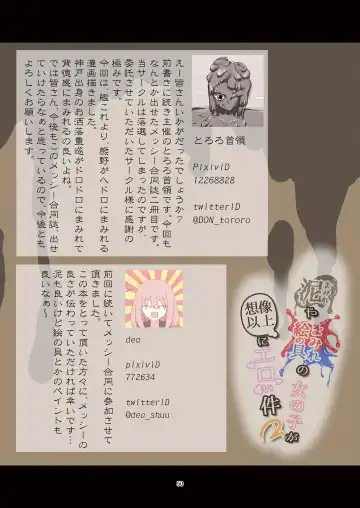 泥や
絵の具
まみれ
の女の子が
想像
以上
にエロい件
2
とろろ首領
PixivID
12268828
twitterID
@DON_tororo
えー皆さんいかがだったでしょうか？
前書きに続き主催のとろろ首領です。今回も
なんとか出せたメッシー合同誌二冊目です。
当サークルは落選してしまったのですが、
委託させていただいたサークル様に感謝の
極みです。
今回は、艦これより、熊野がヘドロにまみれる
漫画描きました。
神戸出身のお洒落重巡がドロドロにまみれて
背徳感にまみれるの良いよね。
では皆さん、今後もこのメッシー合同誌、出せ
ていけたらなぁと思っているので、今後とも
よろしくお願いします。
dea
pixivID
772634
twitterID
@dea_shuu
前回に続いてメッシー合同に参加させて
頂きました。
この本をとって頂いた方々に、メッシーの
良さが伝わっていただければ幸いです…
泥も良いけど絵の具とかのペイントも
良いなぁ〜
50